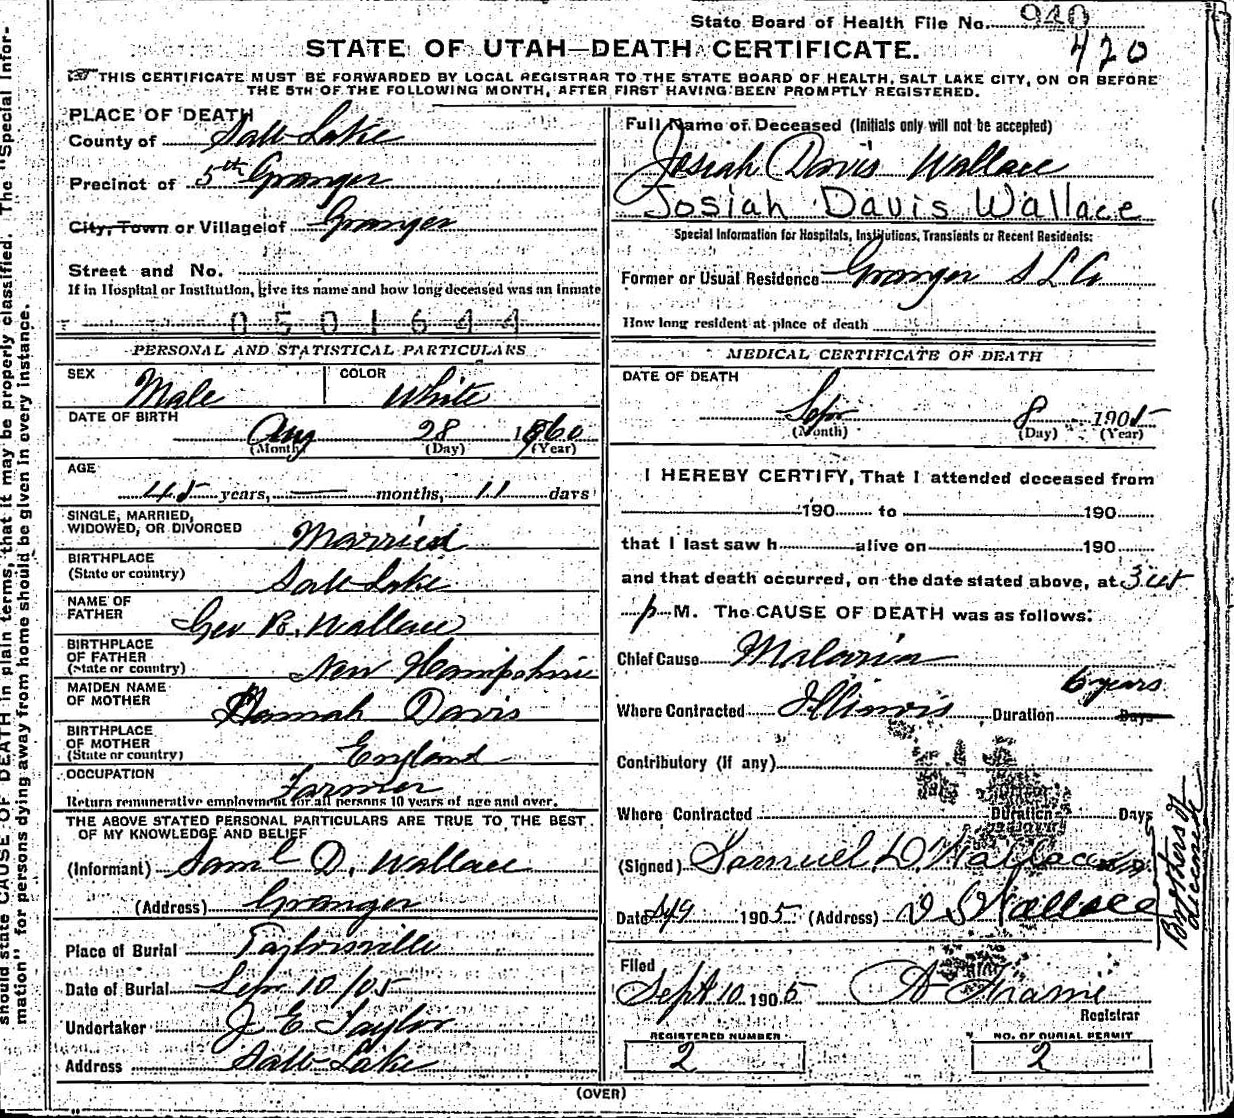 State Board of Health File No. 920
420
STATE OF UTAH—DEATH CERTIFICATE.
THIS CERTIFICATE MUST BE FORWARDED BY LOCAL REGISTRAR TO THE STATE BOARD OF HEALTH, SALT LAKE CITY, ON OR BEFORE
THE 5TH OF THE FOLLOWING MONTH, AFTER FIRST HAVING BEEN PROMPTLY REGISTERED.
PLACE OF DEATH
County of Salt Lake
Precinct of 5th Granger
City, Town or Village of Granger
Street and No.
If in Hospital or Institution, give its name and how long deceased was an Inmate
0501644
PERSONAL AND STATISTICAL PARTICULARS
SEX Male COLOR White
DATE OF BIRTH
Aug 28 1860
(Month) (Day) (Year)
AGE
45 years, — months, 11 days
SINGLE, MARRIED,
WIDOWED, OR DIVORCED Married
BIRTHPLACE
(State or country) Salt Lake
NAME OF
FATHER Geo B. Wallace
BIRTHPLACE
OF FATHER
(State or country) New Hampshire
MAIDEN NAME
OF MOTHER Hannah Davis
BIRTHPLACE
OF MOTHER
(State or country) England
OCCUPATION Farmer
Return remunerative employment for all persons 10 years of age and over.
THE ABOVE STATED PERSONAL PARTICULARS ARE TRUE TO THE BEST
OF MY KNOWLEDGE AND BELIEF
(Informant) Saml D. Wallace
(Address) Granger
Place of Burial Taylorsville
Date of Burial Sep 10/05
Undertaker J E Taylor
Address Salt Lake
Full Name of Deceased (Initials only will not be accepted)
Josiah Davis Wallace
Josiah Davis Wallace
Special Information for Hospitals, Institutions, Transients or Recent Residents:
Former or Usual Residence Granger S L Co
How long resident at place of death
MEDICAL CERTIFICATE OF DEATH
DATE OF DEATH
Sep 8 1905
(Month) (Day) (Year)
I HEREBY CERTIFY, That I attended deceased from
190 to 190
that I last saw h alive on 190
and that death occurred, on the date stated above, at 3 45
p M. The CAUSE OF DEATH was as follows:
Chief Cause Malaria
6 years
Where Contracted Illinois Duration Days
Contributory (if any)
Where Contracted Duration Days
(Signed) Samuel D. Wallace
Date 1905 (Address) D S Wallace
Brothers of
deceased
Filed
Sept 10 1905 A Frame
Registrar
REGISTERED NUMBER
2
NO. OF BURIAL PERMIT
2
(OVER)
should state CAUSE OF DEATH in plain terms, that it may be properly classified. The "Special Infor-
mation" for persons dying away from home should be given in every instance.